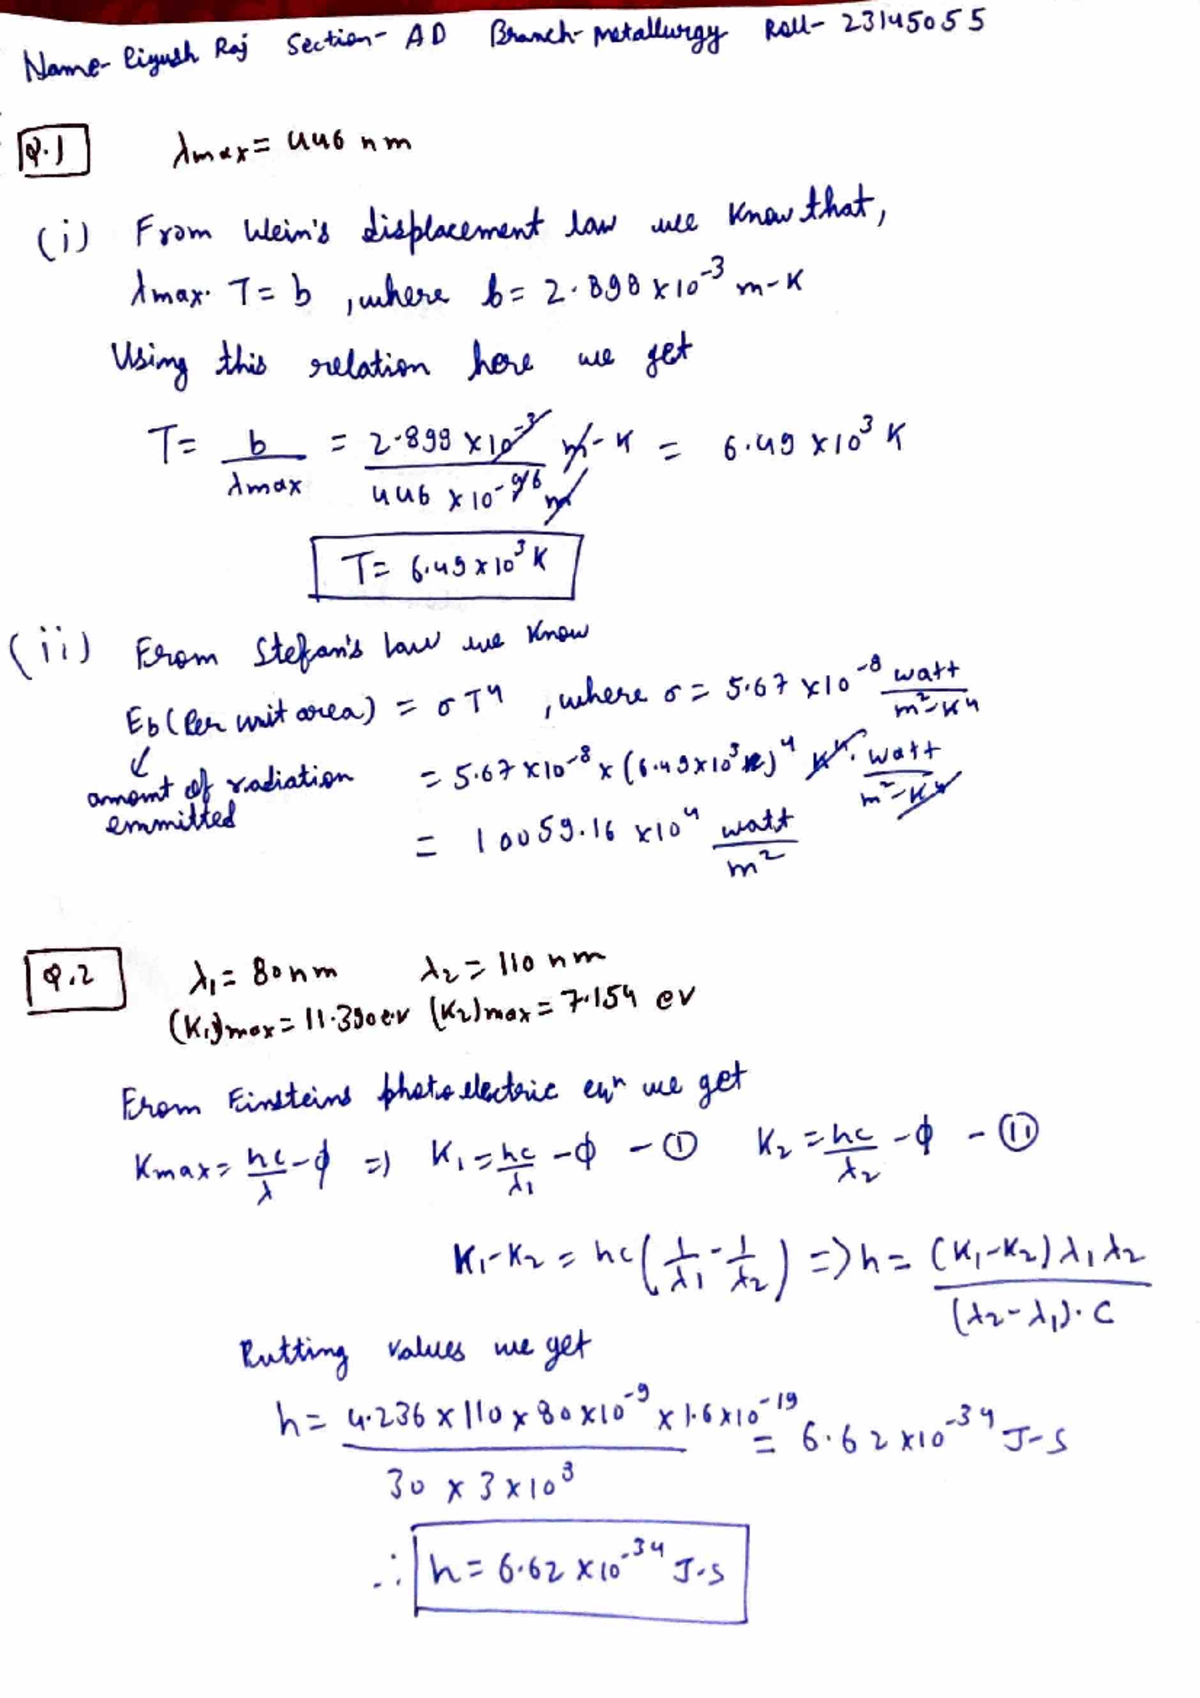 Name- Piyush Raj Section- AD Branch- Metallurgy Roll- 23145055
Q.1 λmax = 446 nm
(i) From Wein's displacement law we know that,
λmax. T = b , where b = 2.898 × 10⁻³ m-K
Using this relation here we get
T = b/λmax = 2.898 × 10⁻³ m-K / 446 × 10⁻⁹ m = 6.49 × 10³ K
T = 6.49 × 10³ K
(ii) From Stefan's law we know
Eb (Per unit area) = σT⁴ , where σ = 5.67 × 10⁻⁸ watt/m²-K⁴
↙
amount of radiation emmitted
= 5.67 × 10⁻⁸ × (6.49 × 10³)⁴ K⁴. watt/m²-K⁴
= 10059.16 × 10⁴ watt/m²
Q.2 λ₁ = 80 nm λ₂ = 110 nm
(K₁)max = 11.390 ev (K₂)max = 7.154 ev
From Einsteins photoelectric eqⁿ we get
Kmax = hc/λ - ϕ => K₁ = hc/λ₁ - ϕ - ① K₂ = hc/λ₂ - ϕ - ⑪
K₁-K₂ = hc(1/λ₁ - 1/λ₂) => h = (K₁-K₂)λ₁λ₂ / (λ₂-λ₁).C
Putting values we get
h = 4.236 × 110 × 80 × 10⁻⁹ × 1.6 × 10⁻¹⁹ / 30 × 3 × 10⁸ = 6.62 × 10⁻³⁴ J-S
∴ h = 6.62 × 10⁻³⁴ J-S